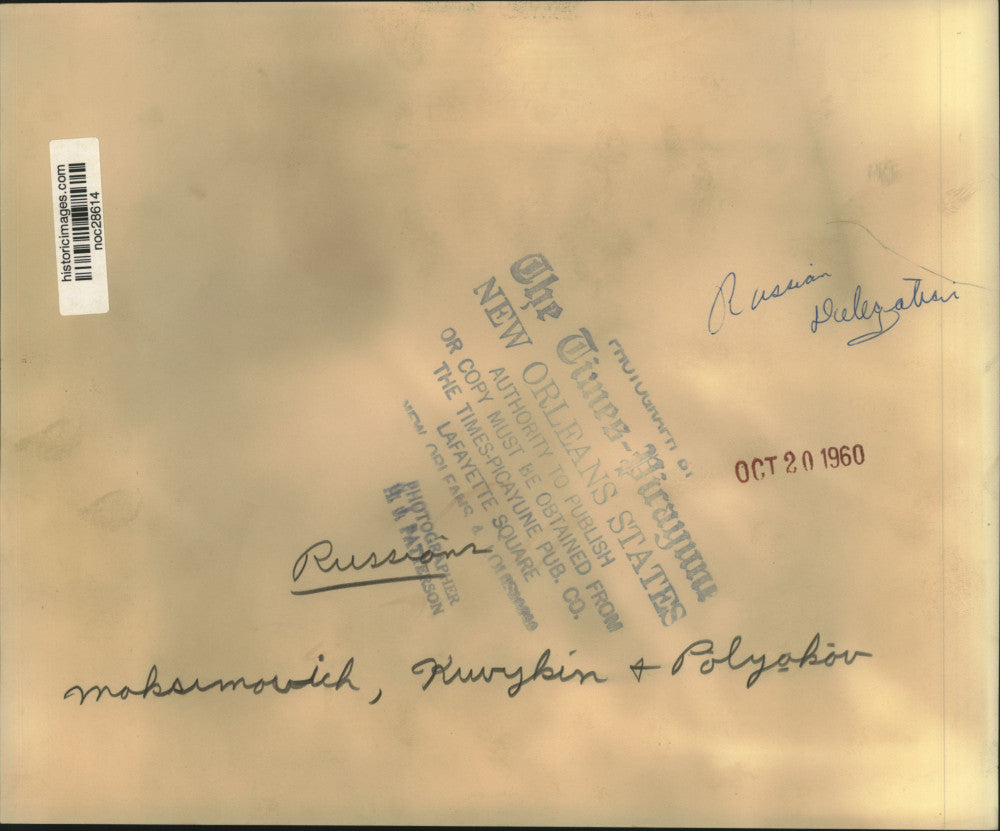 historicimages.com
noc28614
Russian
Delegation
OCT 20 1960
PHOTOGRAPH BY
The Times-Picayune
NEW ORLEANS STATES
AUTHORITY TO PUBLISH
OR COPY MUST BE OBTAINED FROM
THE TIMES-PICAYUNE PUB. CO.
LAFAYETTE SQUARE
NEW ORLEANS
PHOTOGRAPHER
PATTERSON
Russians
Moksimovich, Kuvykin + Polyakov